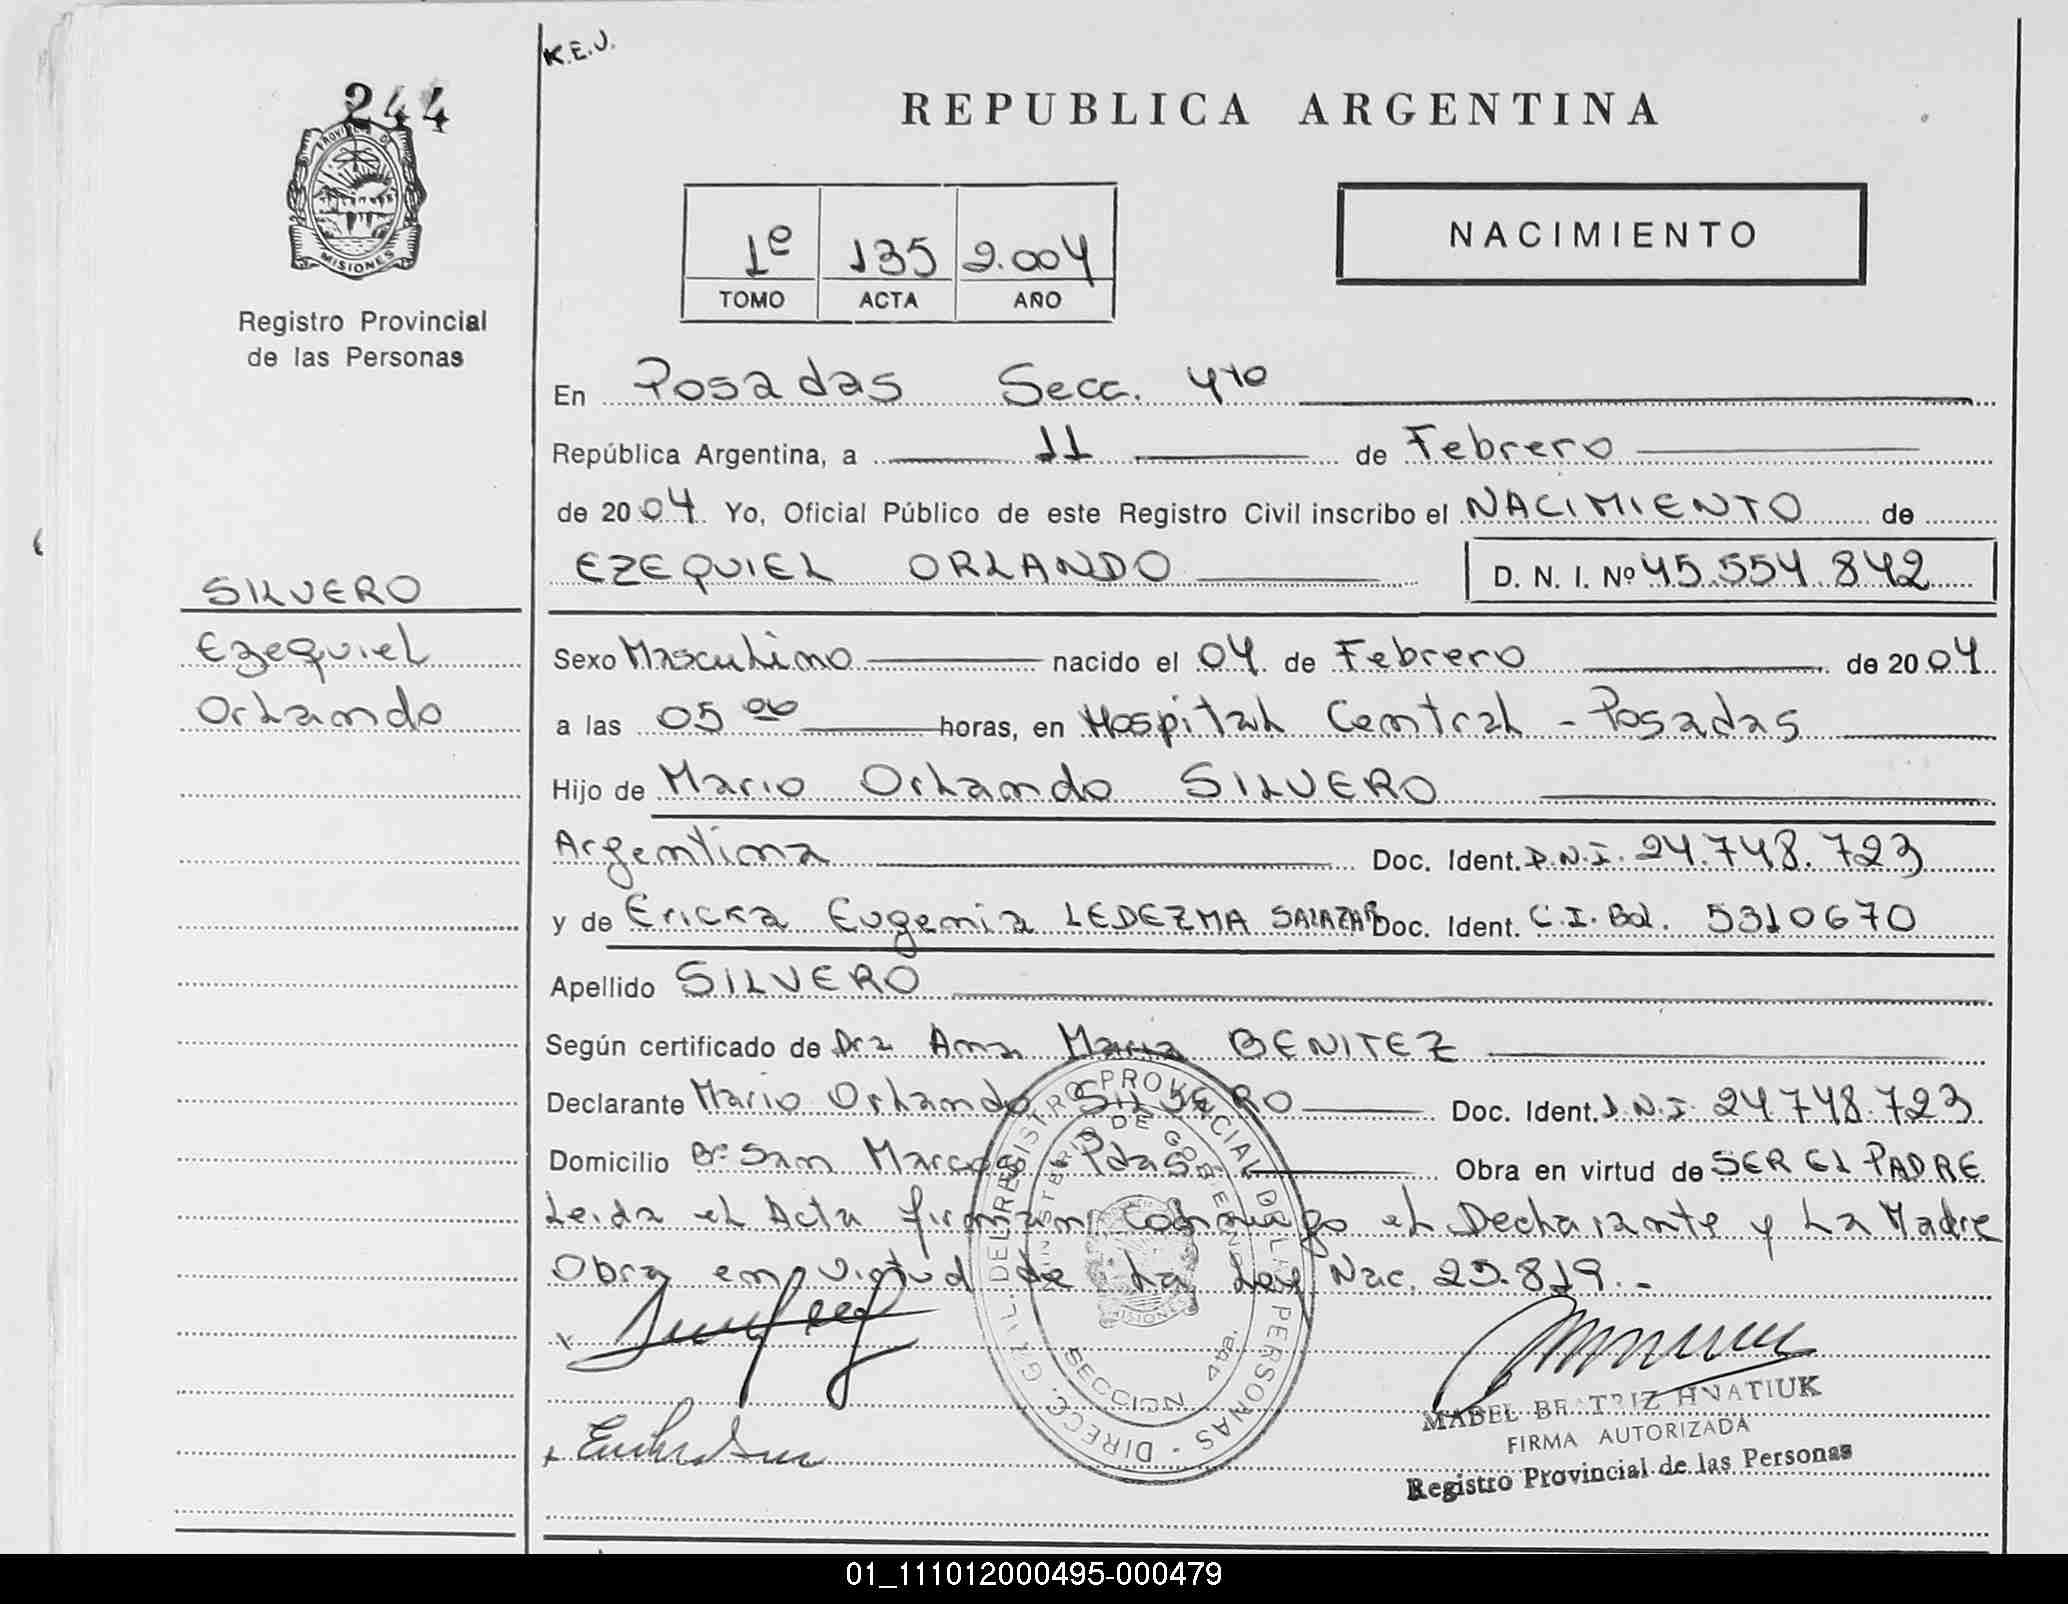 K.E.J.
244
REPUBLICA ARGENTINA
PROVINCIA DE
MISIONES
1º 135 2.004
TOMO ACTA AÑO
NACIMIENTO
Registro Provincial
de las Personas
En Posadas Secc. 4ta
República Argentina, a 11 de Febrero
de 2004 Yo, Oficial Público de este Registro Civil inscribo el NACIMIENTO de
EZEQUIEL ORLANDO D. N. I. Nº 45.554.842
SILVERO
Ezequiel
Orlando
Sexo Masculino nacido el 04 de Febrero de 2004
a las 05 00 horas, en Hospital Central - Posadas
Hijo de Mario Orlando SILVERO
Argentina Doc. Ident. D.N.I. 24.748.723
y de Ericka Eugenia LEDEZMA SALAZAR Doc. Ident. C.I. Bol. 5310670
Apellido SILVERO
Según certificado de Dra Ana Maria BENITEZ
Declarante Mario Orlando SILVERO Doc. Ident. D.N.I. 24.748.723
Domicilio Bº San Marcos Pdas Obra en virtud de SER EL PADRE
Leida el Acta firman conmigo el Declarante y La Madre
Obra en virtud de La Ley Nac. 25.819.-
DIRECC. GRAL. DEL REGISTRO PROVINCIAL DE LAS PERSONAS
MINISTERIO DE GOBIERNO
MISIONES
SECCION 4ta.
MABEL BEATRIZ HNATIUK
FIRMA AUTORIZADA
Registro Provincial de las Personas
01_111012000495-000479